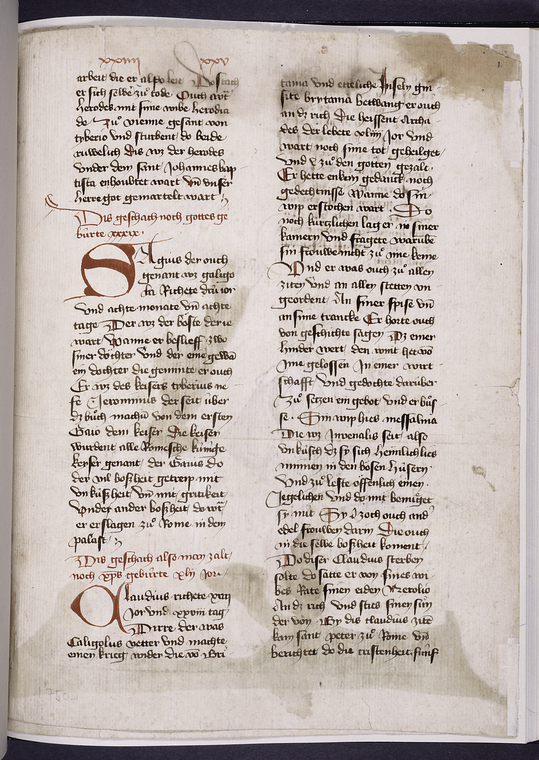 xxiiij xxv
arbeit die er also leit
er sich selbe zuͦ tode Ouch wart
herodes mit sime wibe herodia
de zuͦ vienne gesant von
tyberio und sturbent do beide
ruwelich die wz der herodes
under dem sant Johannes bap
tista enhoubtet wart und unser
herre got gemartelt wart
Dis geschach noch gottes ge
bürte xxxix
Gagius der ouch
genant wz galigo
la Richete drú ior
und achte monate und achte
tage Der wz der böste der ie
wart Wanne er beslieff zwo
siner dochter und der eine gewan
ein dochter die geminte er ouch
Er wz des keisers tyberius ne
fe Jeronimus der seit über
dz buͦch machu von dem ersten
Gaio dem keiser Die keiser
wurdent alle Römesche kunige
keyser genant der Gaius do
der vil bosheit getreip mit
unkúscheit und mit gritikeit
Under ander bosheit do wart
er erslagen zuͦ Rome in dem
palast
Dis geschach also man zalt
noch xps gebúrte xlij Jor
Claudius richete xiij
Jor und xxviij tag
Dirre der was
Caligolus vetter und machte
einen krieg wider die vo Bri
tania und etteliche Inseln gin
site brytania betwang er ouch
an dz rich die heissent Archa
des der lebete xliiij Jor und
wart noch sime tot geheilget
und zuͦ den gotten gezalt
Er hette enkein gedanck noch
gedechtnisse Wanne do sin
wip erstochen wart So
noch kurtzlichen lag er in siner
kamern und fragete warumbe
sin frouwe nicht zuͦ ime keme
Und er was ouch zuͦ allen
ziten und an allen stetten un
geordent An siner spise und
an sime trancke Er horte ouch
von geschichte sagen Dz einer
hinder wert den wint het vo
ime gelossen In einer wirt
schafft Und gedochte darúber
zuͦ setzen ein gebot und er buͦs
se Sin wip hies messalina
Die wz Juvenalis seit also
unkúsch dz sy sich heimlich lies
nimmen in den bösen húsern
Und zuͦ leste öffenlich einen
Jegelichen und do mit benuͦget
sy nút Sy zoch ouch and
edel frouwen darin Die ouch
in die selbe bosheit koment
Do diser Claudius sterben
solte do satte er von sines wi
bes Rate sinen eiden Nerolio
An dz rich und sties sinen sún
der von By dis claudius zite
kam sant peter zuͦ Rome und
berichtet do die cristenheit fúnf